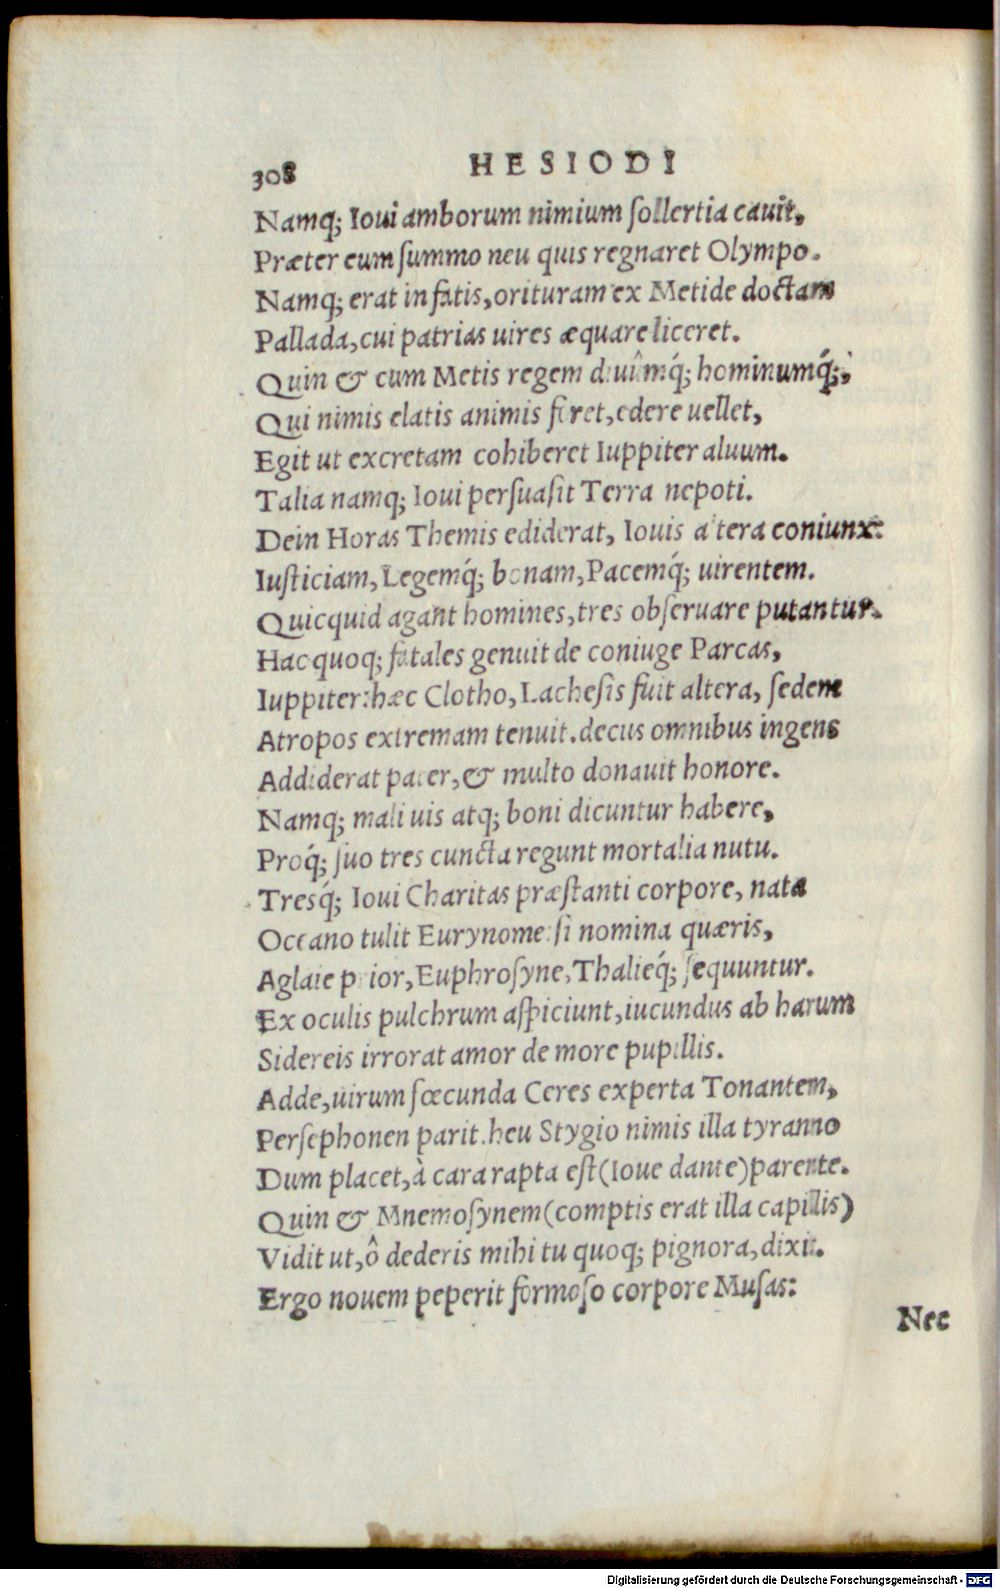 308 HESIODI
Namq; Ioui amborum nimium ſollertia cauit,
Præter eum ſummo neu quis regnaret Olympo.
Namq; erat in fatis, orituram ex Metide doctam
Pallada, cui patrias uires æquare liceret.
Quin & cum Metis regem diuûmq́; hominumq́;,
Qui nimis elatis animis foret, edere uellet,
Egit ut excretam cohiberet Iuppiter aluum.
Talia namq; Ioui perſuaſit Terra nepoti.
Dein Horas Themis ediderat, Iouis altera coniunx:
Iuſticiam, Legemq́; bonam, Pacemq́; uirentem.
Quicquid agant homines, tres obſeruare putantur.
Hac quoq; fatales genuit de coniuge Parcas,
Iuppiter: hæc Clotho, Lacheſis fuit altera, ſedem
Atropos extremam tenuit. decus omnibus ingens
Addiderat pater, & multo donauit honore.
Namq; mali uis atq; boni dicuntur habere,
Proq́; ſuo tres cuncta regunt mortalia nutu.
Tresq́; Ioui Charitas præſtanti corpore, nata
Oceano tulit Eurynome: ſi nomina quæris,
Aglaie prior, Euphroſyne, Thalieq́; ſequuntur.
Ex oculis pulchrum aſpiciunt, iucundus ab harum
Sidereis irrorat amor de more pupillis.
Adde, uirum fœcunda Ceres experta Tonantem,
Perſephonen parit. heu Stygio nimis illa tyranno
Dum placet, à cara rapta eſt (Ioue dante) parente.
Quin & Mnemoſynem (comptis erat illa capillis)
Vidit ut, ô dederis mihi tu quoq; pignora, dixit.
Ergo nouem peperit formoſo corpore Muſas:
Nec
Digitalisierung gefördert durch die Deutsche Forschungsgemeinschaft - DFG